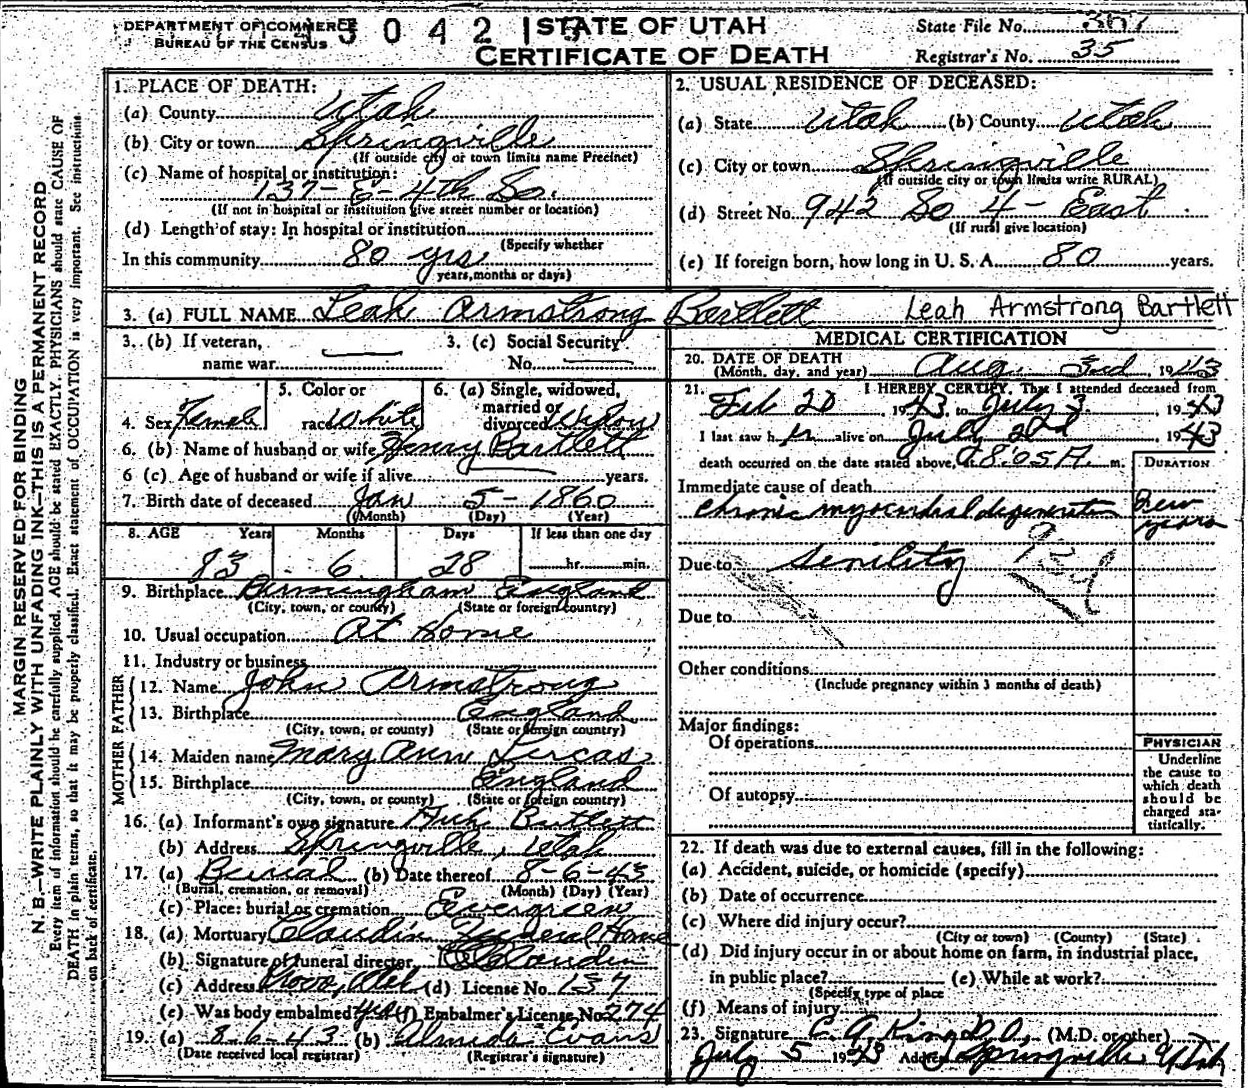 DEPARTMENT OF COMMERCE
BUREAU OF THE CENSUS
5042
STATE OF UTAH
CERTIFICATE OF DEATH
State File No.
Registrar's No. 35
MARGIN RESERVED FOR BINDING
N. B.—WRITE PLAINLY WITH UNFADING INK—THIS IS A PERMANENT RECORD
Every item of information should be carefully supplied. AGE should be stated EXACTLY. PHYSICIANS should state CAUSE OF
DEATH in plain terms, so that it may be properly classified. Exact statement of OCCUPATION is very important. See instructions
on back of certificate.
1. PLACE OF DEATH:
(a) County Utah
(b) City or town Springville
(If outside city or town limits name Precinct)
(c) Name of hospital or institution:
137 - E - 4th So.
(If not in hospital or institution give street number or location)
(d) Length of stay: In hospital or institution
(Specify whether
In this community 80 yrs
years, months or days)
2. USUAL RESIDENCE OF DECEASED:
(a) State Utah (b) County Utah
(c) City or town Springville
(If outside city or town limits write RURAL)
(d) Street No. 942 So 4 - East
(If rural give location)
(e) If foreign born, how long in U. S. A. 80 years.
3. (a) FULL NAME Leah Armstrong Bartlett Leah Armstrong Bartlett
3. (b) If veteran, name war
3. (c) Social Security No.
4. Sex Female
5. Color or race White
6. (a) Single, widowed, married or divorced Widow
6. (b) Name of husband or wife Henry Bartlett
6 (c) Age of husband or wife if alive years.
7. Birth date of deceased Jan 5 - 1860
(Month) (Day) (Year)
8. AGE Years Months Days If less than one day
83 6 28 hr. min.
9. Birthplace Birmingham England
(City, town, or county) (State or foreign country)
10. Usual occupation At Home
11. Industry or business
FATHER
12. Name John Armstrong
13. Birthplace England
(City, town, or county) (State or foreign country)
MOTHER
14. Maiden name Mary Ann Lucas
15. Birthplace England
(City, town, or county) (State or foreign country)
16. (a) Informant's own signature Bartlett
(b) Address Springville, Utah
17. (a) Burial (b) Date thereof 8-6-43
(Burial, cremation, or removal) (Month) (Day) (Year)
(c) Place: burial or cremation Evergreen
18. (a) Mortuary Claudin Funeral Home
(b) Signature of funeral director Claudin
(c) Address Provo, Utah (d) License No. 157
(e) Was body embalmed Yes (f) Embalmer's License No. 274
19. (a) 8-6-43 (b) Almeda Evans
(Date received local registrar) (Registrar's signature)
MEDICAL CERTIFICATION
20. DATE OF DEATH Aug. 3rd 1943
(Month, day, and year)
21. I HEREBY CERTIFY, That I attended deceased from
Feb 20, 1943, to July 3, 1943
I last saw her alive on July 2nd, 1943
death occurred on the date stated above, at 8:05 A. m.
DURATION
Immediate cause of death
chronic myocardial degeneration few years
Due to senility 93d
Due to
Other conditions
(Include pregnancy within 3 months of death)
Major findings:
Of operations
Of autopsy
PHYSICIAN
Underline
the cause to
which death
should be
charged sta-
tistically.
22. If death was due to external causes, fill in the following:
(a) Accident, suicide, or homicide (specify)
(b) Date of occurrence
(c) Where did injury occur?
(City or town) (County) (State)
(d) Did injury occur in or about home on farm, in industrial place,
in public place? (e) While at work?
(Specify type of place
(f) Means of injury
23. Signature (M.D. or other)
July 5 1943 Address Springville Utah